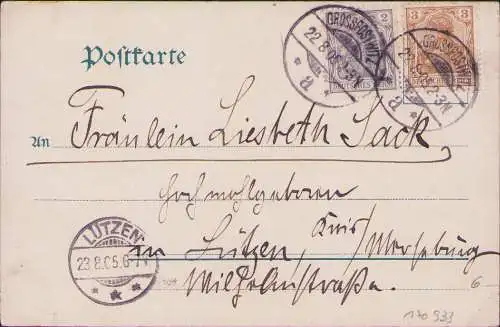 Postkarte
GROSSPOSTWITZ
22.8.05.
a
2
3
GROSSPOSTWITZ
a
An Fräulein Liesbeth Sack,
Hochwohlgeboren
in Lützen, Kreis Merseburg
Wilhelmstraße. 6
LÜTZEN
23.8.05.6-7V
140 933